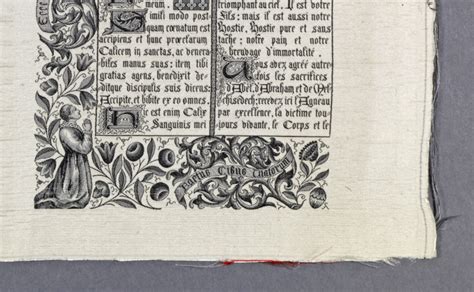 meum.
Simili modo post
quam cœnatum est
accipiens et hunc præclarum
Calicem in sanctas, ac venera
biles manus suas; item tibi
gratias agens, benedixit de
ditque discipulis suis dicens:
Accipite, et bibite ex eo omnes.
Hic est enim Calix
Sanguinis mei
triomphant au ciel. Il est votre
Fils; mais il est aussi notre
Hostie, Hostie pure et sans
tache; notre pain et notre
breuvage d'immortalité.
Vous avez agréé autre
fois les sacrifices
d'Abel, d'Abraham et de Mel
chisedech; recevez ici l'Agneau
par excellence, la victime tou
jours vivante, le Corps et le
Factus Cibus Viatorum